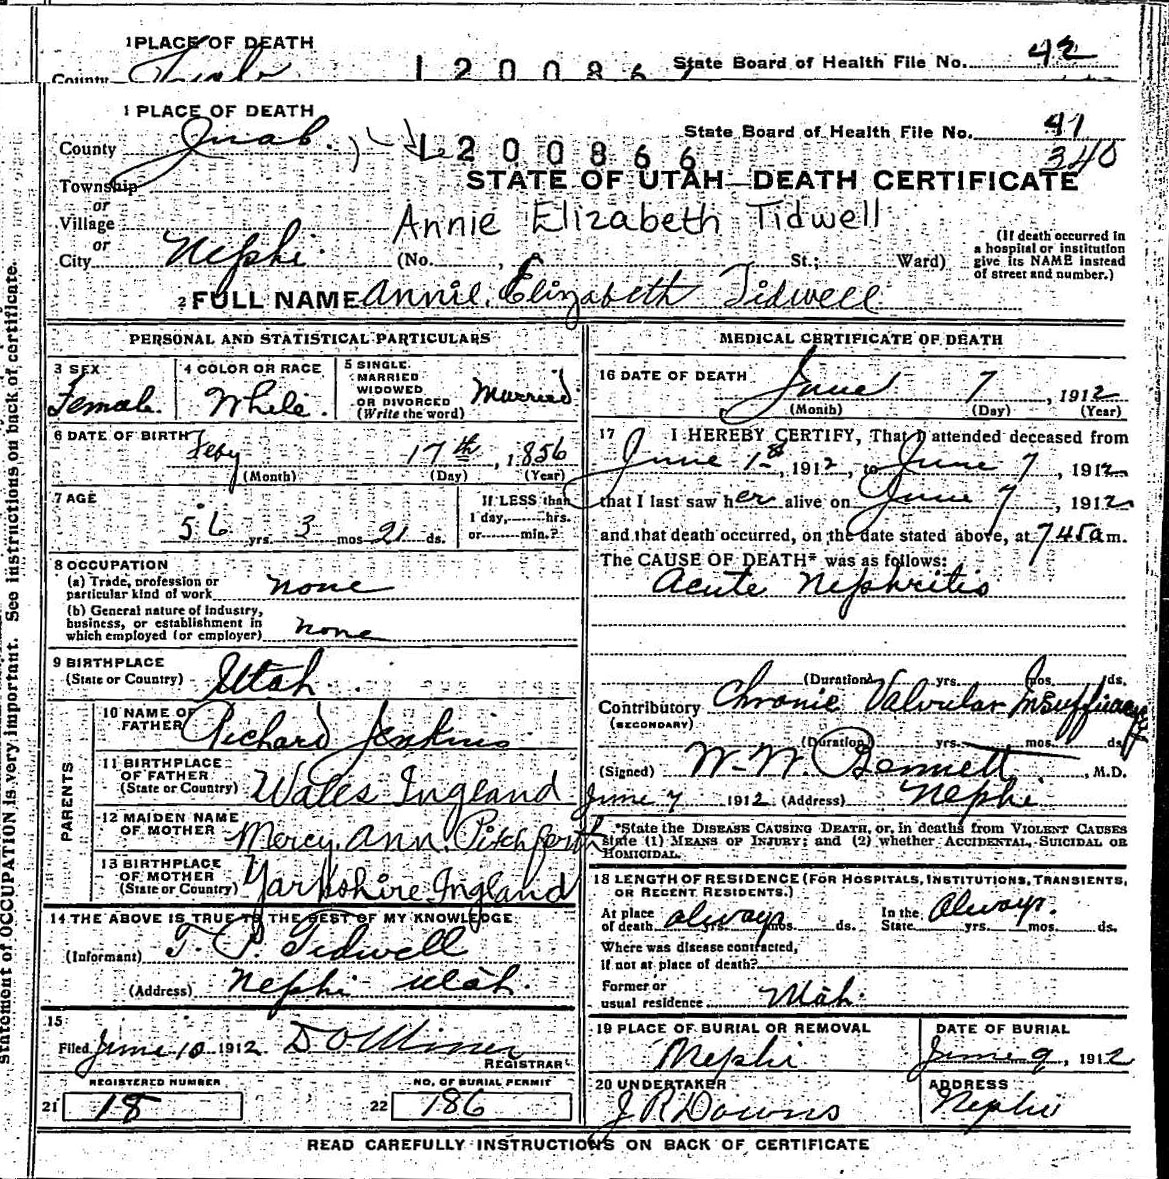 1 PLACE OF DEATH
County
1 2 0 0 8 6 7 State Board of Health File No. 42
1 PLACE OF DEATH
State Board of Health File No. 41
County Juab.
1 2 0 0 8 6 6 340
Township
STATE OF UTAH—DEATH CERTIFICATE
or
Village Annie Elizabeth Tidwell
or
City Nephi (No. , St.; Ward)
(If death occurred in
a hospital or institution
give its NAME instead
of street and number.)
2 FULL NAME Annie Elizabeth Tidwell
PERSONAL AND STATISTICAL PARTICULARS
3 SEX
Female.
4 COLOR OR RACE
White.
5 SINGLE
MARRIED
WIDOWED
OR DIVORCED
(Write the word)
Married
6 DATE OF BIRTH
Feby 17th, 1856
(Month) (Day) (Year)
7 AGE
56 yrs. 3 mos 21 ds.
If LESS than
1 day, hrs.
or min.?
8 OCCUPATION
(a) Trade, profession or
particular kind of work none
(b) General nature of industry,
business, or establishment in
which employed (or employer) none
9 BIRTHPLACE
(State or Country) Utah.
PARENTS
10 NAME OF
FATHER Richard Jenkins
11 BIRTHPLACE
OF FATHER
(State or Country) Wales Ingland
12 MAIDEN NAME
OF MOTHER Mercy Ann. Pitchforth
13 BIRTHPLACE
OF MOTHER
(State or Country) Yarkshire. Ingland
14 THE ABOVE IS TRUE TO THE BEST OF MY KNOWLEDGE
(Informant) T. P. Tidwell
(Address) Nephi Utah.
15
Filed June 10 1912. D O Miner
REGISTRAR
REGISTERED NUMBER
21 18
NO. OF BURIAL PERMIT
22 186
MEDICAL CERTIFICATE OF DEATH
16 DATE OF DEATH
June 7, 1912
(Month) (Day) (Year)
17 I HEREBY CERTIFY, That I attended deceased from
June 1st, 1912, to June 7, 1912
that I last saw her alive on June 7, 1912
and that death occurred, on the date stated above, at 7 45 a m.
The CAUSE OF DEATH* was as follows:
Acute Nephritis
(Duration) yrs. mos. ds.
Contributory Chronic Valvular Insufficiency
(SECONDARY)
(Duration yrs. mos. ds.
(Signed) W. W. Bennett, M.D.
June 7 1912 (Address) Nephi
*State the DISEASE CAUSING DEATH, or, in deaths from VIOLENT CAUSES
state (1) MEANS OF INJURY; and (2) whether ACCIDENTAL, SUICIDAL OR
HOMICIDAL.
18 LENGTH OF RESIDENCE (FOR HOSPITALS, INSTITUTIONS, TRANSIENTS,
OR RECENT RESIDENTS.)
At place
of death always yrs. mos. ds.
In the
State always. yrs. mos. ds.
Where was disease contracted,
if not at place of death?
Former or
usual residence Utah.
19 PLACE OF BURIAL OR REMOVAL
Nephi
DATE OF BURIAL
June 9, 1912
20 UNDERTAKER
J R Downs
ADDRESS
Nephi
READ CAREFULLY INSTRUCTIONS ON BACK OF CERTIFICATE
statement of OCCUPATION is very important. See instructions on back of certificate.